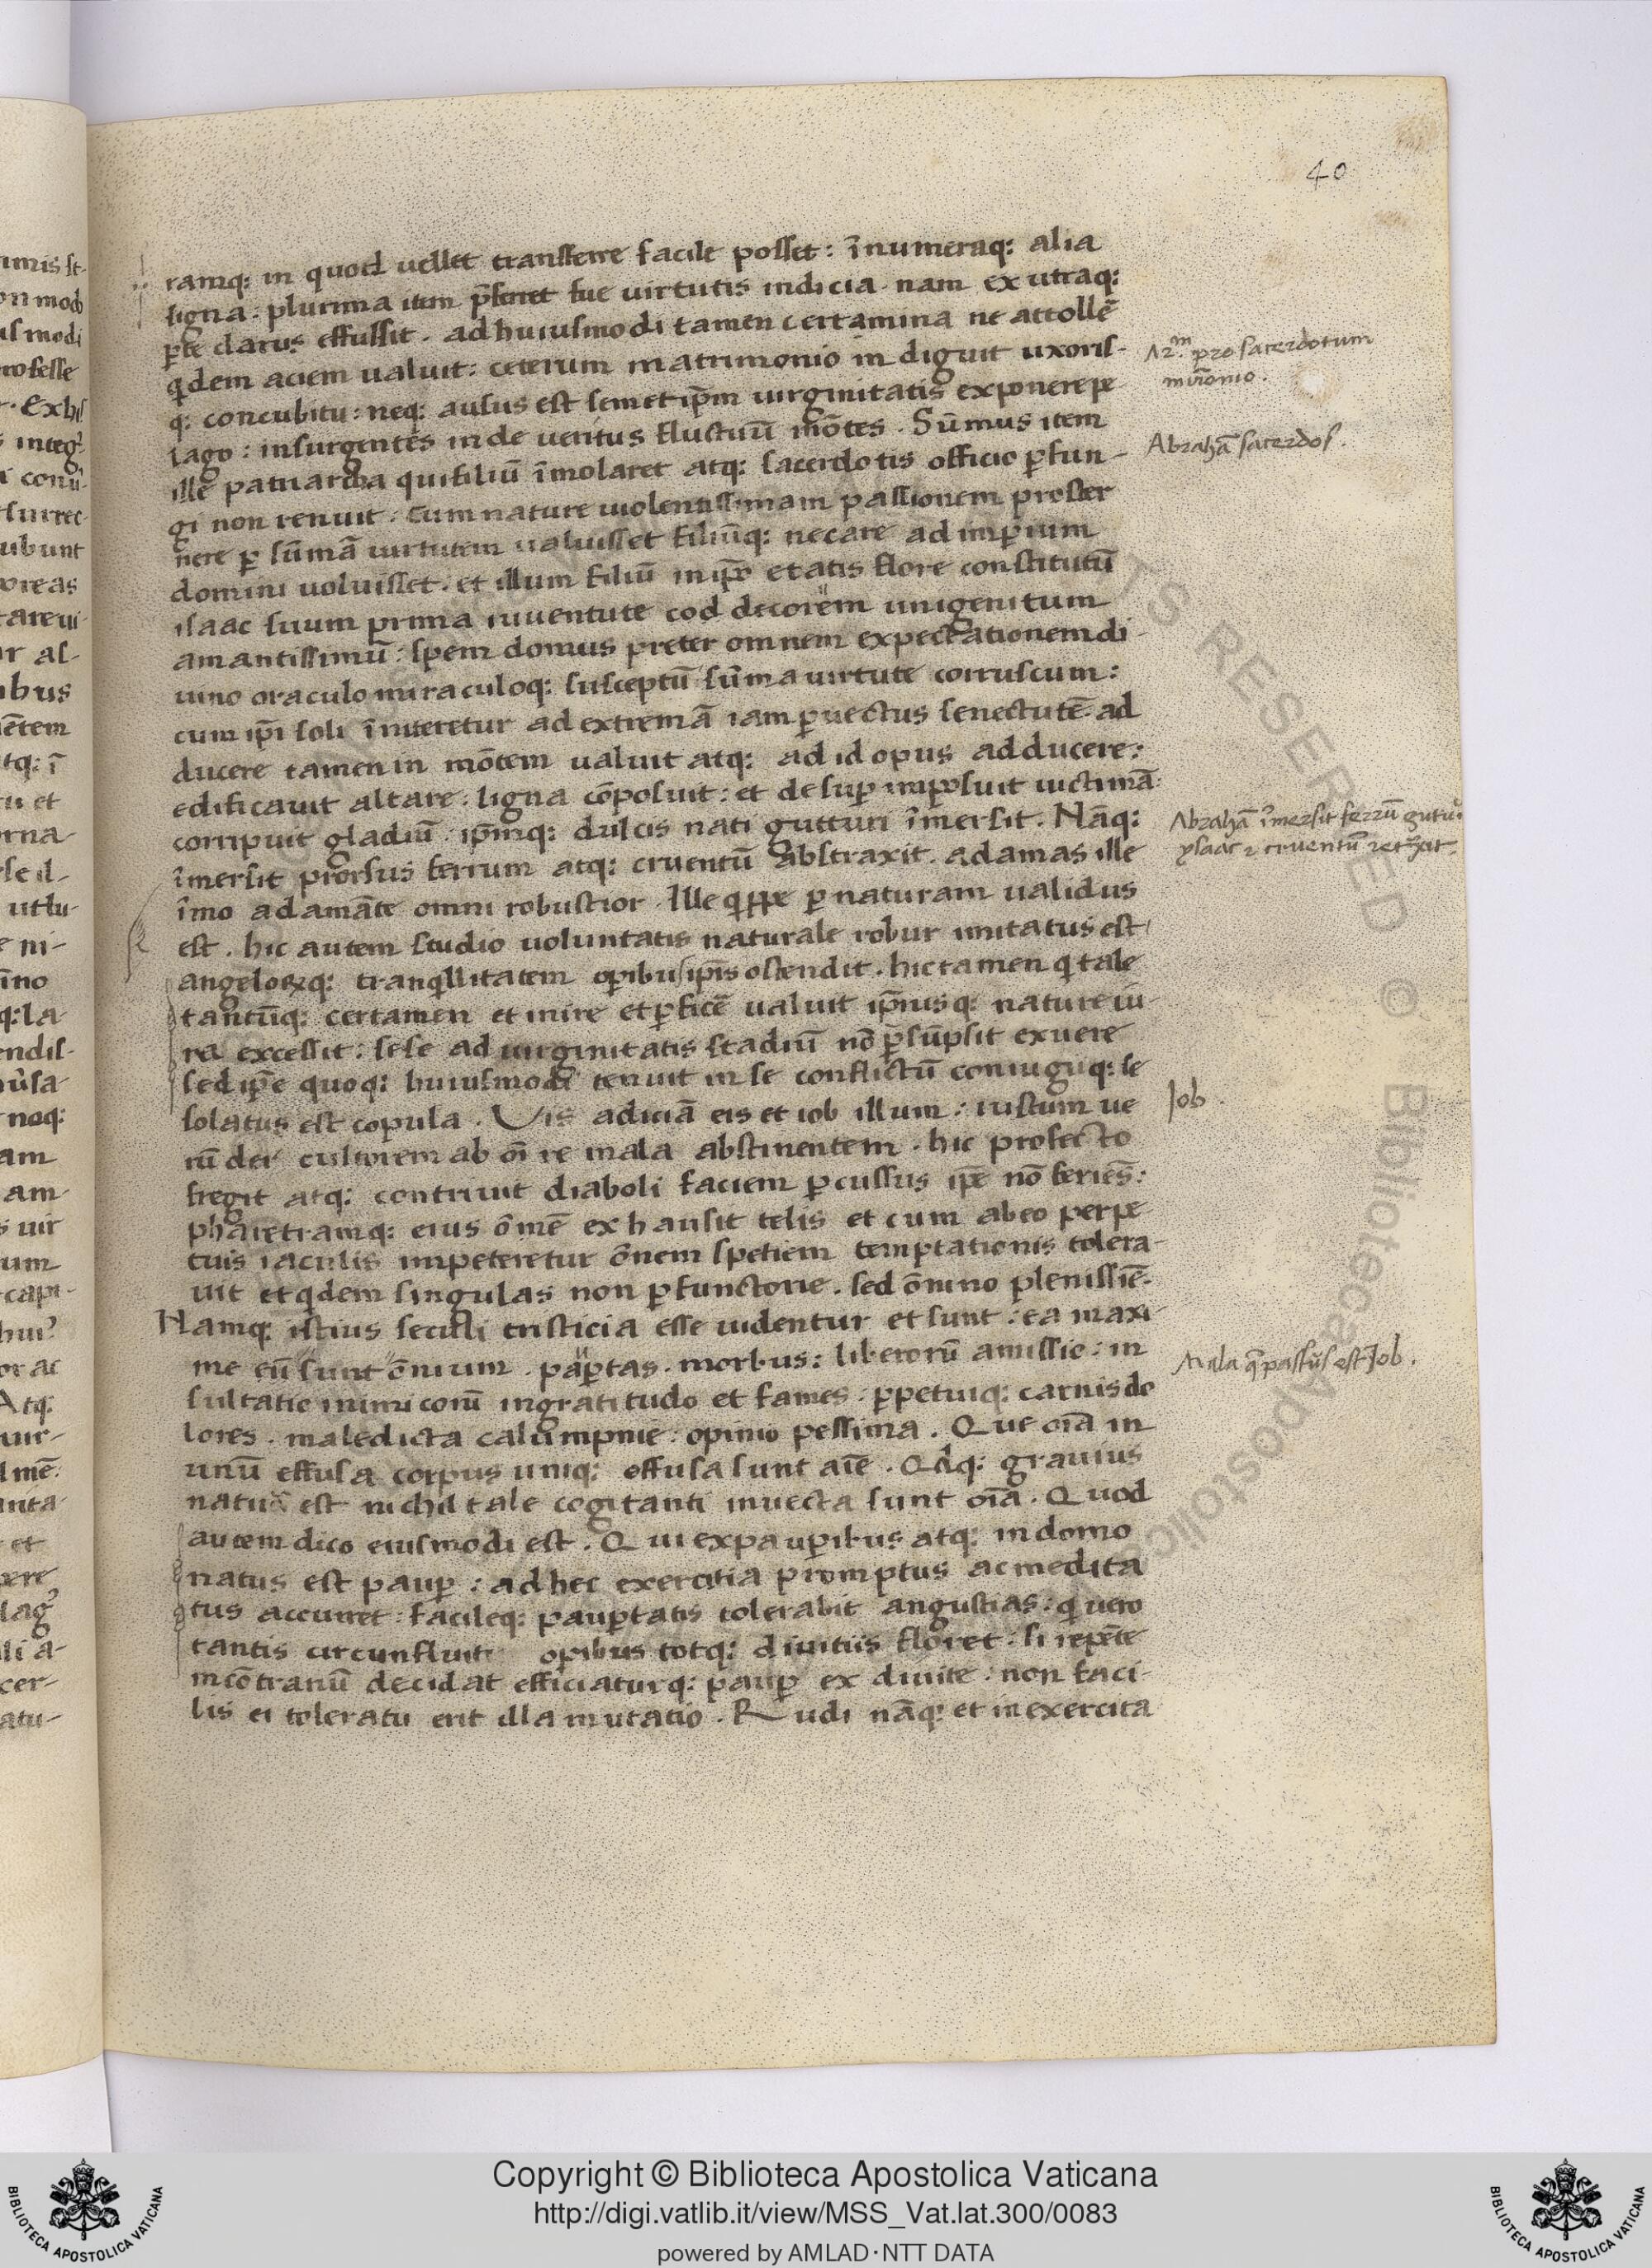 40
ramq: in quod uellet transferre facile posset: īnumeraq: alia
signa: plurima item p̄ferret sue uirtutis indicia. nam ex utraq:
ꝑte clarus effulsit. ad huiusmodi tamen certamina ne attollē
q̇dem aciem ualuit: ceterum matrimonio indiguit uxoris-
q: concubitu: neq: ausus est semet ip̄m uirginitatis exponere pe
lago: insurgentes inde ueritus fluctuū mōtes. Sūmus item
ille patriarcha qui filiū īmolaret atq: sacerdotis officio ꝑfun-
gi non renuit. cum nature uiolentissimam passionem proster
nere ꝑ sūmā uirtutem ualuisset filiūq: necare ad imꝑium
domini uoluisset. et illum filiū in ip̄o etatis flore constitutū
isaac suum prima iuuentute cod decorem unigenitum
amantissimū: spem domus preter omnem expectationem di-
uino oraculo miraculoq: susceptū sūma uirtute corruscum:
cum ip̄i soli īniteretur ad extremā iam ꝑuectus senectutē. ad
ducere tamen in mōtem ualuit atq: ad id opus adducere:
edificauit altare: ligna cōposuit: et desuꝑ imposuit uictimā:
corripuit gladiū. ip̄mq: dulcis nati gutturi īmersit. Nāq:
īmersit prorsus ferrum atq: cruentū abstraxit. adamas ille
īmo adamāte omni robustior. Ille q̇ppe ꝑ naturam ualidus
est. hic autem studio uoluntatis naturale robur imitatus est
angeloꝝq: tranq̇llitatem oꝑibus ip̄is ostendit. hic tamen q̇ tale
tantūq: certamen et inire et ꝑficē ualuit ip̄iusq: nature iu-
ra excessit: sese ad uirginitatis stadiū nō p̄sūpsit exuere
sed ip̄e quoq: huiusmodi tenuit in se conflictū coniugiiq: se
solatus est copula. Vis adiciā eis et iob illum: iustum ue
rū dei cultorem ab oī re mala abstinentem. hic profecto
fregit atq: contriuit diaboli faciem ꝑcussus ip̄e nō feriēs:
pharetramq: eius ōmē exhausit telis et cum ab eo perpe
tuis iaculis impeteretur ōnem spetiem temptationis tolera-
uit et q̇dem singulas non ꝑfunctorie. sed ōnino plenissīe.
Namq: istius seculi tristicia esse uidentur et sunt: ea maxi-
me cū sunt ōnium. pauꝑtas. morbus: liberorū amissio: in
sultatio inimicorū ingratitudo et fames: ꝑpetuiq: carnis do
lores. maledicta calumpnie: opinio pessima. Que oīa in
unū effusa corpus uniq: offusa sunt aīe. Qdq: grauius
natū est nichil tale cogitanti inuecta sunt oīa. Quod
autem dico eiusmodi est. Qui ex pauꝑibus atq: in domo
natus est pauꝑ: ad hec exercitia promptus ac medita
tus accurret: facileq: pauꝑtatis tolerabit angustias: q̇ uero
tantis circunfluit opibus totq: diuitiis floret: si repēte
in cōtrariū decidat efficiaturq: pauꝑ ex diuite: non faci-
lis ei toleratu erit illa mutatio. Rudi nāq: et inexercita
pro sacerdotum
Abrahā sacerdos.
Abrahā īmersit ferrū gutu.
ysaac ⁊ cruentū
Job.
Mala q̄ passus est Job.
Copyright © Biblioteca Apostolica Vaticana
http://digi.vatlib.it/view/MSS_Vat.lat.300/0083
powered by AMLAD·NTT DATA
BIBLIOTECA APOSTOLICA VATICANA
BIBLIOTECA APOSTOLICA VATICANA